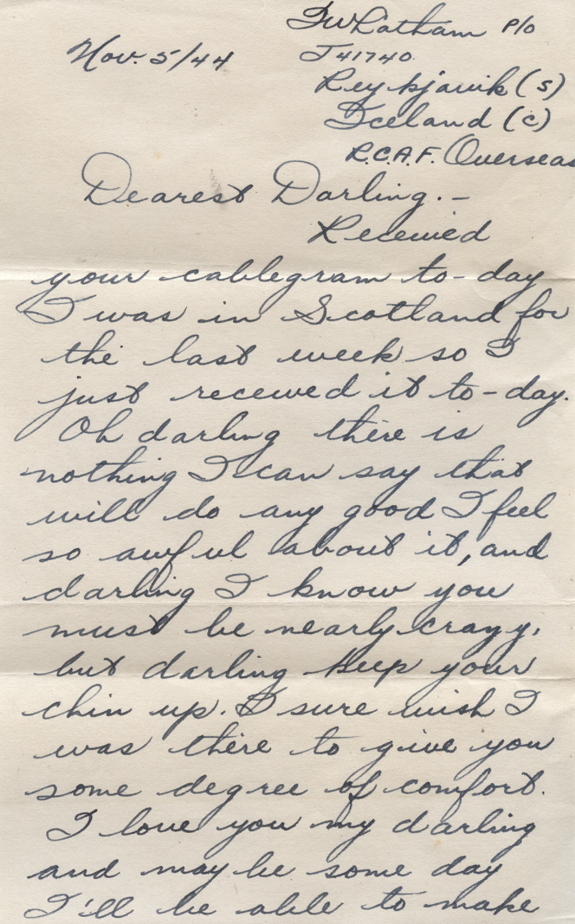 F W Latham P/O
Nov. 5/44 J 41740
Reykjavik (s)
Iceland (c)
R.C.A.F. Overseas
Dearest Darling.-
Received
your cablegram to-day
I was in Scotland for
the last week so I
just received it to-day.
Oh darling there is
nothing I can say that
will do any good I feel
so awful about it, and
darling I know you
must be nearly crazy,
but darling keep your
chin up. I sure wish I
was there to give you
some degree of comfort.
I love you my darling
and maybe some day
I'll be able to make